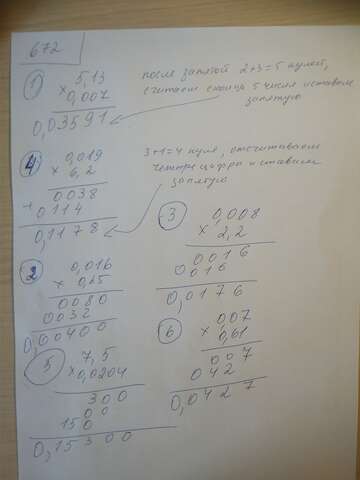 672
1
5,13
× 0,007
0,03591
после запятой 2+3=5 нулей,
считаем сконца 5 чисел и ставим
запятую
4
0,019
× 6,2
0038
+ 0114
0,1178
3+1=4 нуля, отсчитываем
четыре цифры и ставим
запятую
3
0,008
× 2,2
0016
0016
0,0176
2
0,016
× 0,25
0080
0032
0,00400
6
0,07
× 0,61
007
042
0,0427
5
7,5
× 0,0204
300
00
150
0,15300